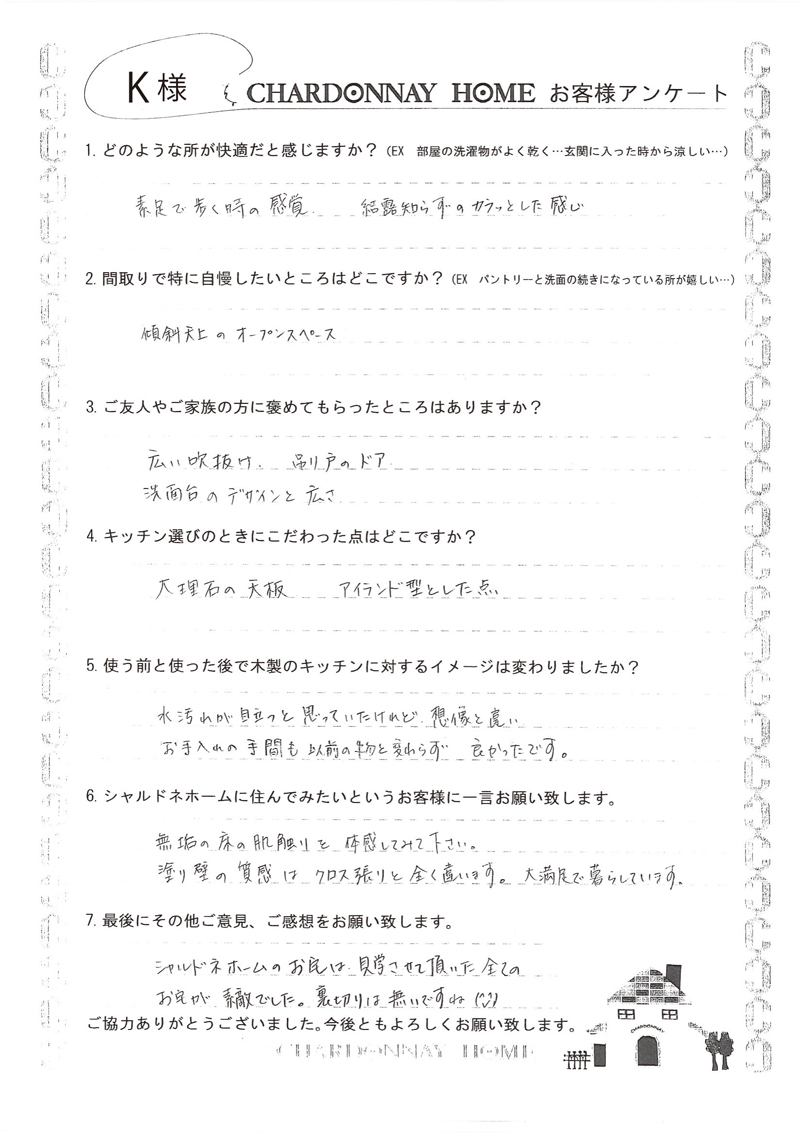 K様 CHARDONNAY HOME お客様アンケート
1. どのような所が快適だと感じますか？（EX 部屋の洗濯物がよく乾く…玄関に入った時から涼しい…）
素足で歩く時の感覚 結露知らずのカラッとした感じ
2. 間取りで特に自慢したいところはどこですか？（EX パントリーと洗面の続きになっている所が嬉しい…）
傾斜天上のオープンスペース
3. ご友人やご家族の方に褒めてもらったところはありますか？
広い吹抜け、吊り戸のドア
洗面台のデザインと広さ
4. キッチン選びのときにこだわった点はどこですか？
大理石の天板 アイランド型とした点
5. 使う前と使った後で木製のキッチンに対するイメージは変わりましたか？
水汚れが目立つと思っていたけれど想像と違い
お手入れの手間も以前の物と変わらず 良かったです。
6. シャルドネホームに住んでみたいというお客様に一言お願い致します。
無垢の床の肌触りを体感してみて下さい。
塗り壁の質感はクロス張りと全く違います。大満足で暮らしています。
7. 最後にその他ご意見、ご感想をお願い致します。
シャルドネホームのお宅は見学させて頂いた全ての
お宅が素敵でした。裏切りは無いですね(^^)
ご協力ありがとうございました。今後ともよろしくお願い致します。
CHARDONNAY HOME
CHARDONNAY